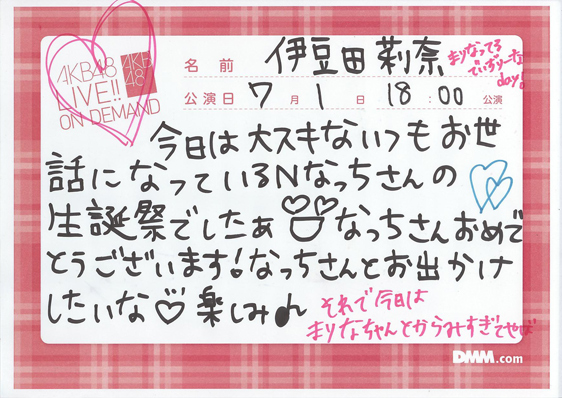 AKB48
LIVE!!
ON DEMAND
AKB
48
名前 伊豆田莉奈
まりなってる
でいずりーな
day!
公演日 7月1 18:00公演
今日は大スキないつもお世
話になっているNなっちさんの
生誕祭でしたぁ なっちさんおめで
とうございます!なっちさんとお出かけ
したいな♡楽しみ♪
それで今日は
まりなちゃんとからみすぎてやば
DMM.com